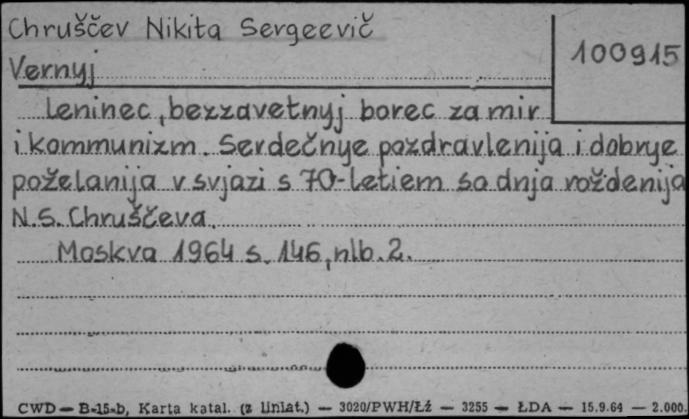 Chruščev Nikita Sergeevič
100915
Vernyj
Leninec, bezzavetnyj borec za mir
i kommunizm. Serdečnye pozdravlenija i dobrye
poželanija v svjazi s 70-letiem so dnja roždenija
N.S. Chruščeva.
Moskva 1964 s. 146, nlb. 2.
CWD — B-15-b, Karta katal. (z liniat.) — 3020/PWH/Łź — 3255 — ŁDA — 15.9.64 — 2.000.